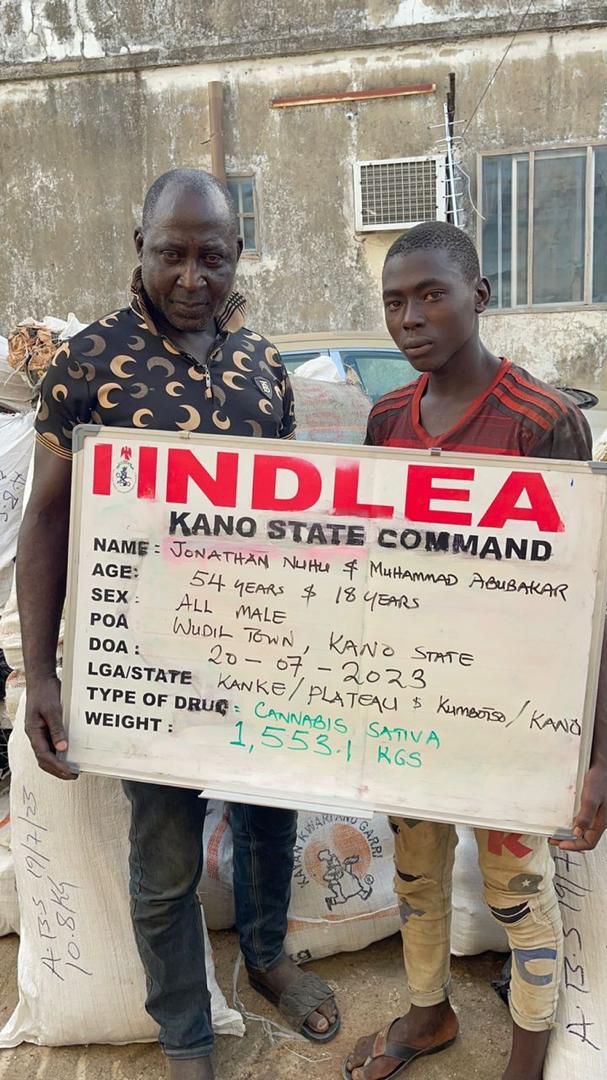 NDLEA
KANO STATE COMMAND
NAME: JONATHAN NUHU & MUHAMMAD ABUBAKAR
AGE: 54 YEARS & 18 YEARS
SEX: ALL MALE
POA WUDIL TOWN, KANO STATE
DOA: 20-07-2023
LGA/STATE KANKE/PLATEAU & KUMBOTSO/KANO
TYPE OF DRUG: CANNABIS SATIVA
WEIGHT: 1,553.1 KGS
A.B.S 19/7/23
10.8 KG
KWARIAND GARRI
A.B.S 19/7